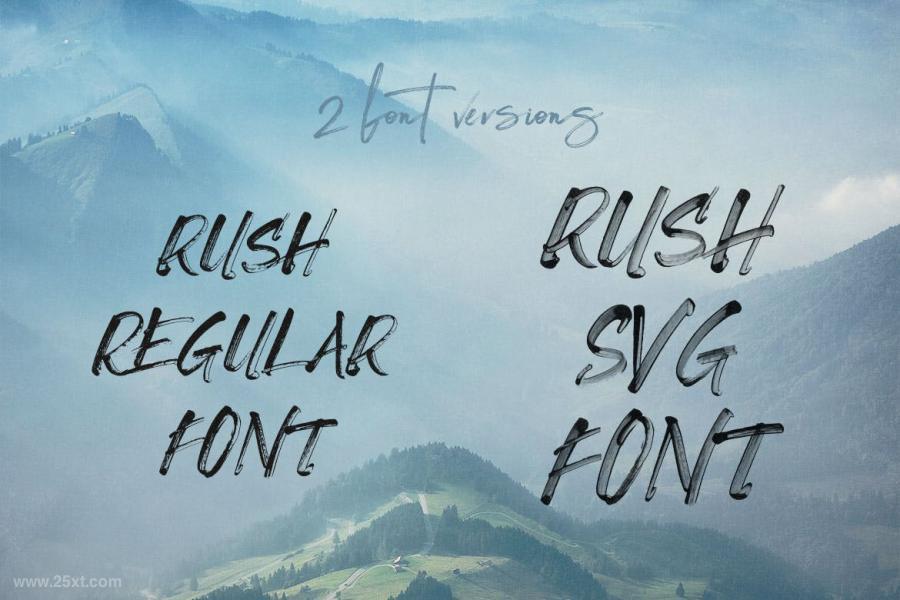 2 font versions
RUSH
REGULAR
FONT
RUSH
SVG
FONT
www.25xt.com